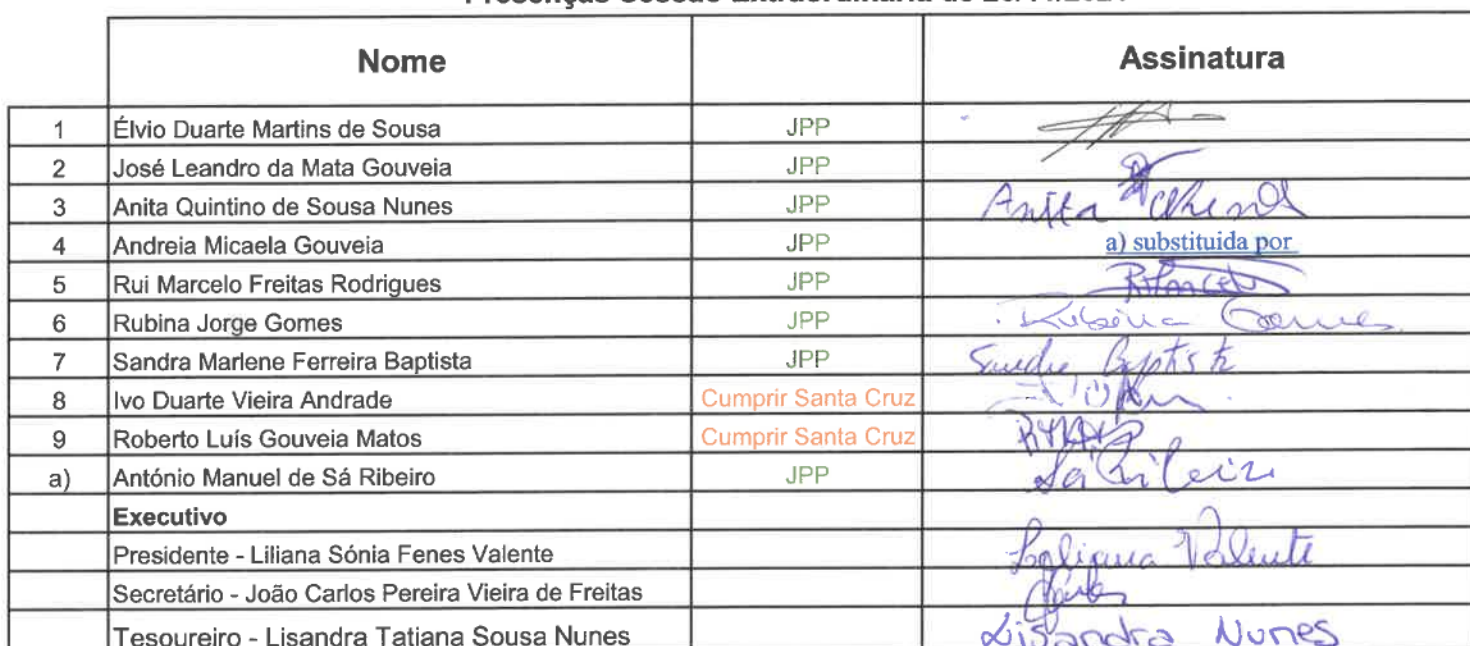 Nome Assinatura
1 Élvio Duarte Martins de Sousa JPP
2 José Leandro da Mata Gouveia JPP
3 Anita Quintino de Sousa Nunes JPP Anita
4 Andreia Micaela Gouveia JPP a) substituida por
5 Rui Marcelo Freitas Rodrigues JPP
6 Rubina Jorge Gomes JPP Rubina Gomes
7 Sandra Marlene Ferreira Baptista JPP Sandra Baptista
8 Ivo Duarte Vieira Andrade Cumprir Santa Cruz
9 Roberto Luís Gouveia Matos Cumprir Santa Cruz
a) António Manuel de Sá Ribeiro JPP Sá Ribeiro
Executivo
Presidente - Liliana Sónia Fenes Valente Liliana Valente
Secretário - João Carlos Pereira Vieira de Freitas
Tesoureiro - Lisandra Tatiana Sousa Nunes Lisandra Nunes